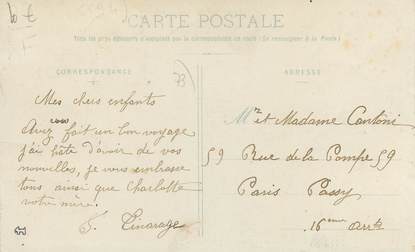 CARTE POSTALE
Tous les pays étrangers n'acceptent pas la correspondance au recto (Se renseigner à la Poste)
CORRESPONDANCE
ADRESSE
73
Mes chers enfants
Avez vous fait un bon voyage
j'ai hâte d'avoir de vos
nouvelles, je vous embrasse
tous ainsi que Charlotte
votre mère.
Mr et Madame Cantoni
59 Rue de la Pompe 59
Paris Passy
16eme Arrt